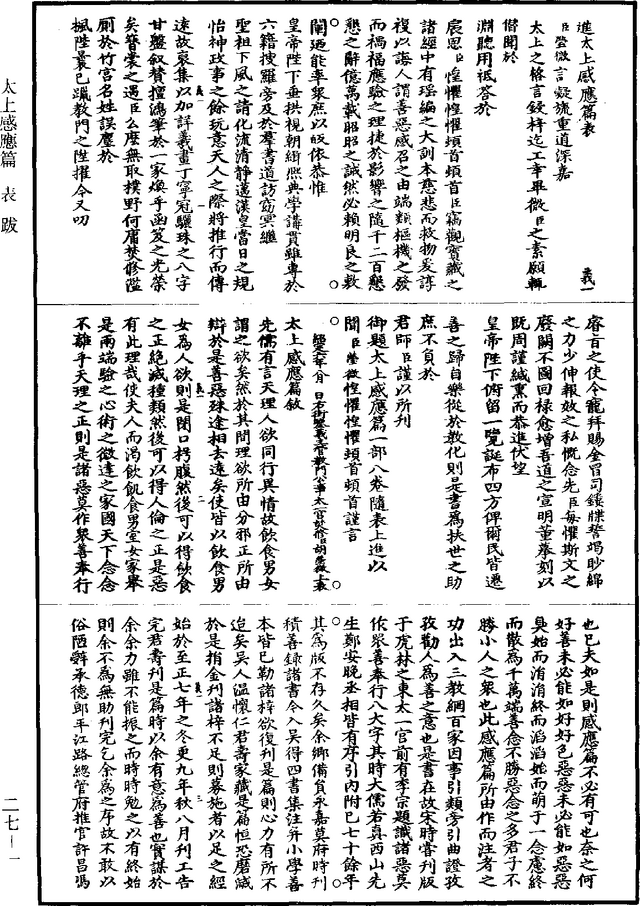 進太上感應篇表
臣瑩微言凝旒重道深嘉
義一
太上之格言鋟梓迄工幸畢微臣之素願輒
僭聞於
淵聽用祗答於
宸恩臣惶懼惶懼頓首頓首臣竊觀寶藏之
諸經中有瑤編之大訓本慈悲而救物爰諄
復以誨人謂善惡感召之由端類樞機之發
而禍福應驗之理捷於影響之隨千二百懇
懇之辭億萬載昭昭之誠然必賴明良之敷
闡廼能率衆庶以皈依恭惟
皇帝陛下垂拱視朝緝熙典學講貫雖專於
六籍搜羅旁及於羣書道訪窈冥繼
聖祖下風之請化流清靜邁漢皇當日之規
怡神政事之餘玩意天人之際將推行而傳
遠故裒集以加詳義畫丁寧冠驪珠之八字
甘盤叙贊擅鴻筆於一家煥乎函笈之光榮
矣簪裳之遇臣么麼無取樸野何庸焚修濫
廁於竹宮名姓誤塵於
楓陛曩已躐教門之陞擢今又叨
睿旨之使令寵拜賜金冒司鏤牒竭眇綿
之力少伸報效之私慨念先臣每懼斯文之
廢闕不圖回祿愈增吾道之宣明董摹刻以
既周謹緘熏而恭進伏望
皇帝陛下俯留一覽誕布四方俾爾民皆遷
善之歸自樂從於教化則是書爲扶世之助
庶不負於
君師臣謹以所刊
御題太上感應篇一部八卷隨表上進以
聞臣瑩微惶懼惶懼頓首頓首謹言
年八月 日 臣胡瑩微上表
太上感應篇敘
先儒有言天理人欲同行異情故飲食男女
謂之欲矣然於其間理欲所由分邪正所由
辯於是善惡殊途相去遠矣使皆以飲食男
女爲人欲則是閉口枵腹然後可以得飲食
之正絕滅種類然後可以得人倫之正是惡
有此理哉使夫人而渴飲飢食男室女家舉
是兩端驗之心術之微達之家國天下念念
不離乎天理之正則是諸惡莫作衆善奉行
也已夫如是則感應篇不必有可也奈之何
好善未必能如好好色惡惡未必能如惡惡
臭始而涓涓終而滔滔始而萌于一念慮終
而散爲千萬端善念不勝惡念之多君子不
勝小人之衆也此感應篇所由作而注者之
功出入三教網百家因事引類旁引曲證孜
孜勸人爲善之意也是書在故宋時嘗刊版
于虎林之東太一宮前有李宗題識諸惡莫
作衆善奉行八大字其時大儒若真西山先
生鄭安晚丞相皆有序引內附已七十餘年
其爲版不存久矣余鄉備負永嘉莫府時刊
積善錄諸書今入吴得四書集注并小學善
本皆已勒諸梓欲復刊是篇則心力有所不
迨矣吴人溫懷仁君壽家藏是篇恒恐磨滅
於是捐金刊諸梓不足則募施者以足之經
始於至正七年之冬更九年秋八月刊工告
完君壽刊是篇時以余有意爲善也實謀於
余余力雖不能振之而時時勉之以有終始
則余不爲無助刊完乞余爲之序故不敢以
俗陋辭承德郎平江路總管府推官許昌馮
太上感應篇 表 跋
二七-一